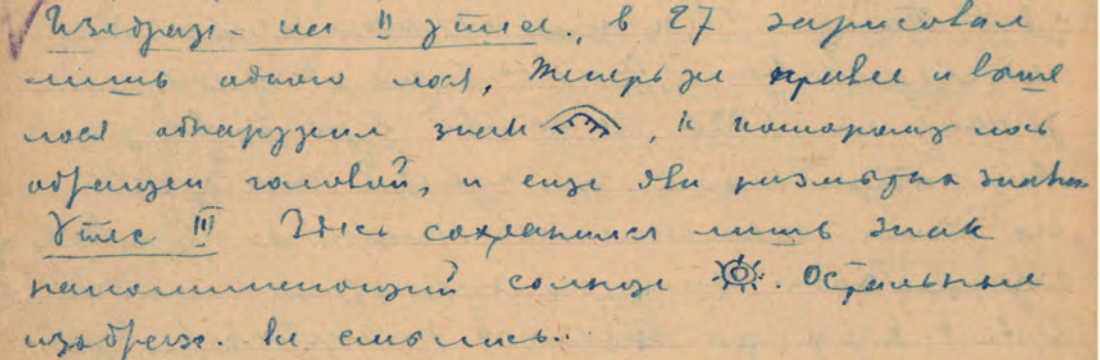 Изображ. на II утесе., в 27 зарисовал
лишь одного лося, теперь же правее и выше
лося обнаружил знак , к которому лось
обращен головой, и еще два размытых знака.
Утес III Здесь сохранился лишь знак
напоминающий солнце . Остальные
изображ. все смылись.